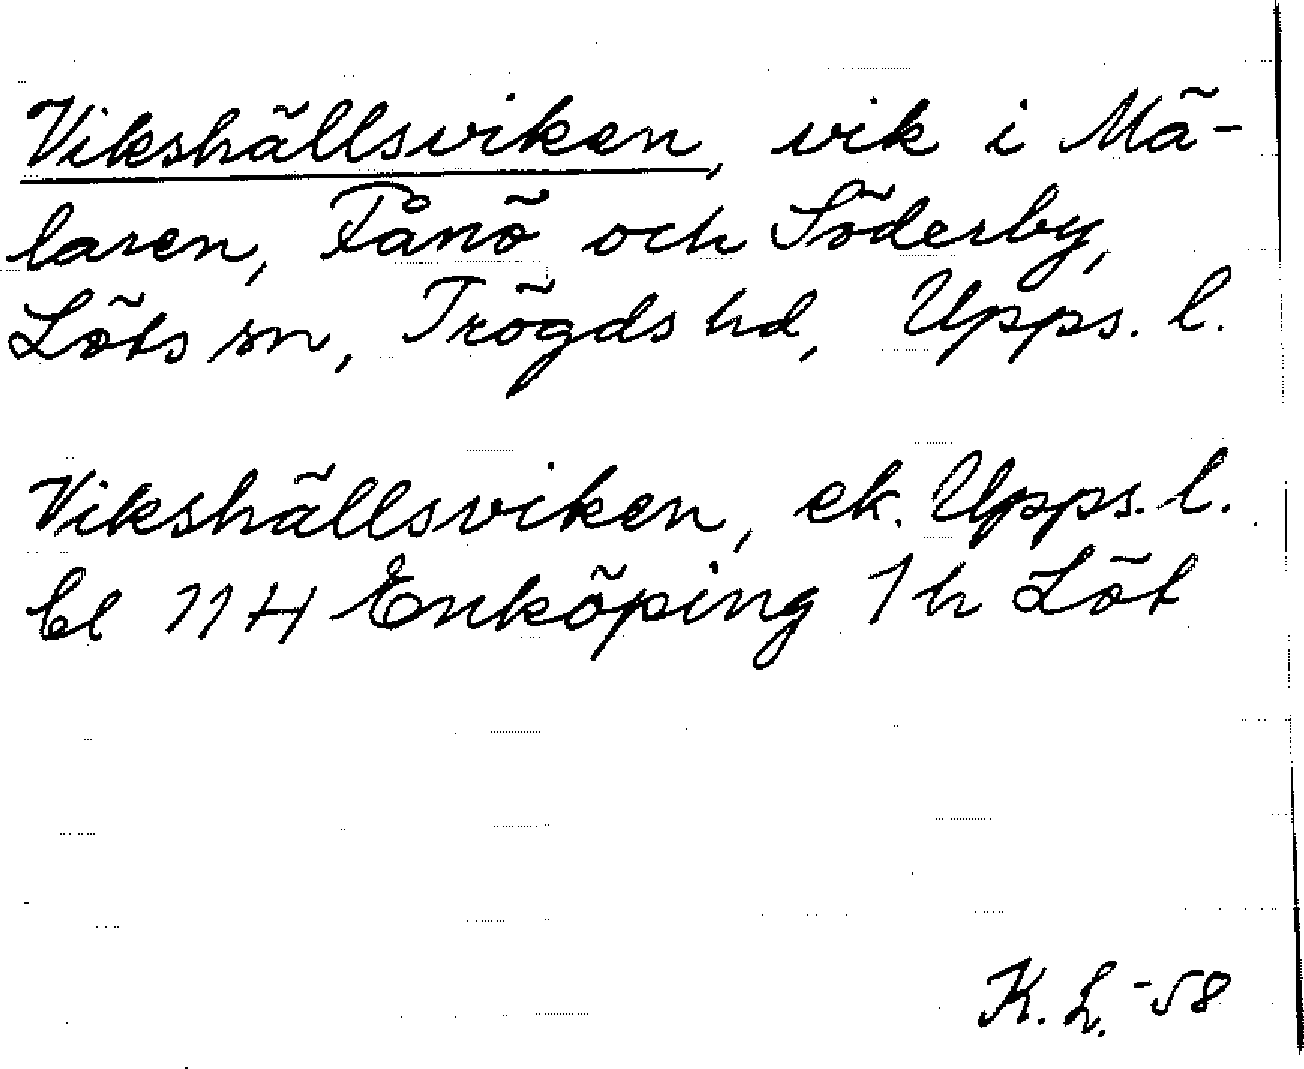 Vikshällsviken, vik i Mä-
laren, Fånö och Söderby,
Löts sn, Trögds hd, Upps. l.
Vikshällsviken, ek. Upps. l.
bl 114 Enköping 1h Löt
K. L. -58